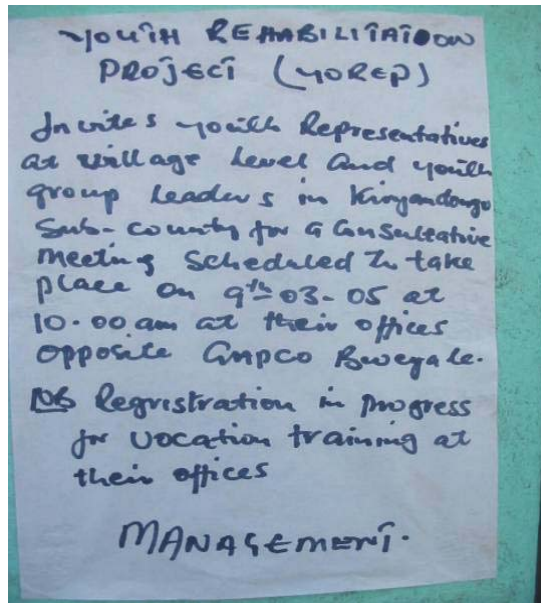 YOUTH REHABILITATION
PROJECT (YOREP)
Invites youth Representatives
at village level and youth
group leaders in Kiryandongo
Sub-county for a Consultative
meeting scheduled to take
place on 9th-03-05 at
10.00 am at their offices
opposite Bweyale.
NB Regristration in progress
for vocation training at
their offices
MANAGEMENT.